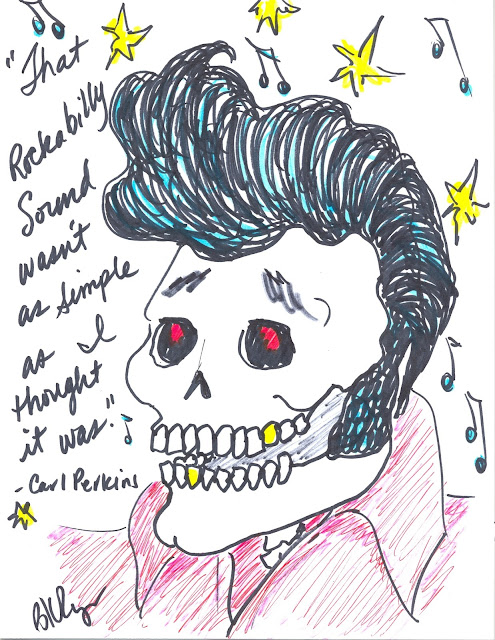 "That
Rockabilly
Sound
wasn't
as simple
as I
thought
it was."
- Carl Perkins